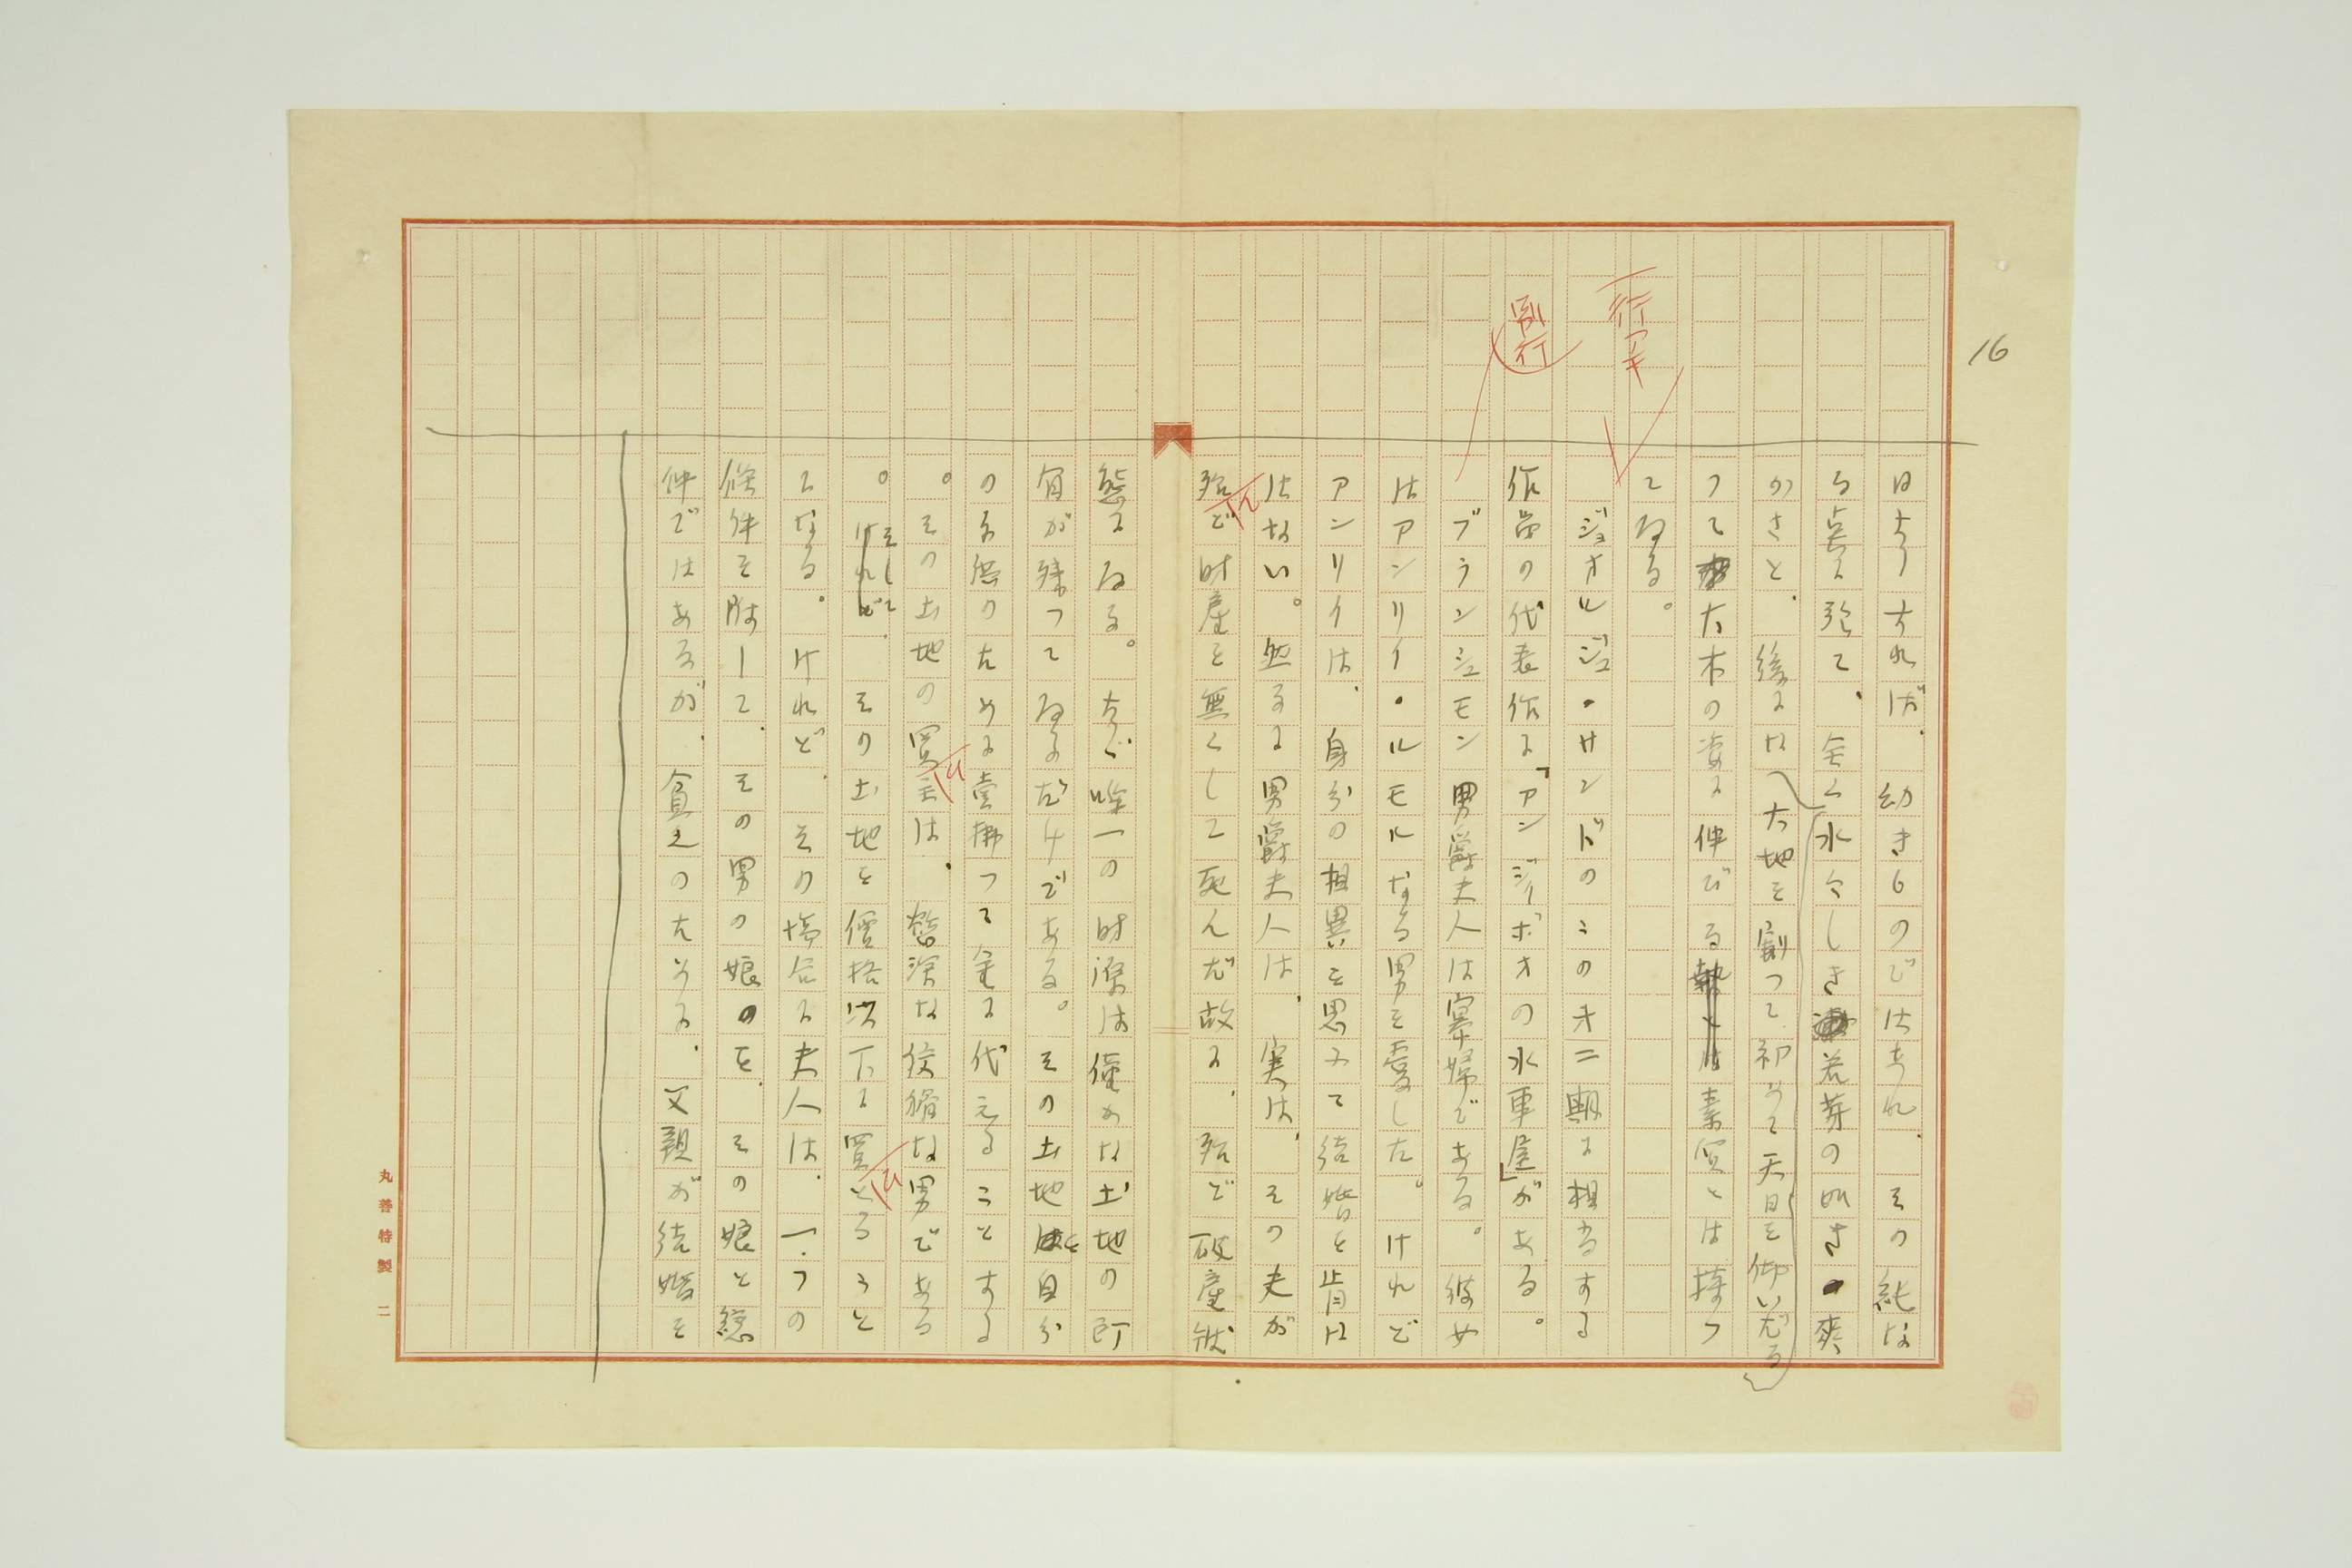 16
日まうすれば、幼きものではあれ、その純な
る真に発て、全く水々しき若芽の如き爽
かさと、後には大地を劃つて初めて天日を仰いだる
つて大木の姿に伸びる素質とは持つ
てゐる。
一行アキ
ジョオルジュ・サンドのこのオ二期に相当する
別行
作品の代表作に「アンジイボオの水車屋」がある。
ブランシュモン男爵夫人は寡婦である。彼女
はアンリイ・ルモルなる男を愛した。けれど
アンリイは、身分の相異を思みて結婚を肯は
はない。然るに男爵夫人は、実は、その夫が
殆んど財産を無くして死んだ故に、殆ど破産状
態にゐる。たゞ唯一の財源は僅かな土地の所
有が残つてゐるだけである。その土地を自分
の負債のために売拂つて金に代えることする
。その土地の買主は、慾深な狡猾な男である
。そして、その土地を價格以下に買とろうと
になる。けれど、その場合に夫人は、一つの
條件を附して、その男の娘のを、その娘と戀
仲ではあるが、貧乏のために、父親が結婚を
丸善特製 二